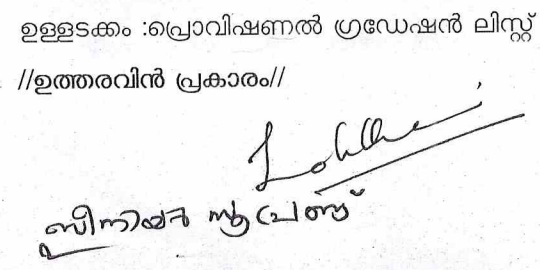 ഉള്ളടക്കം :പ്രൊവിഷണൽ ഗ്രഡേഷൻ ലിസ്റ്റ്
//ഉത്തരവിൻ പ്രകാരം//
സീനിയർ സൂപ്രണ്ട്